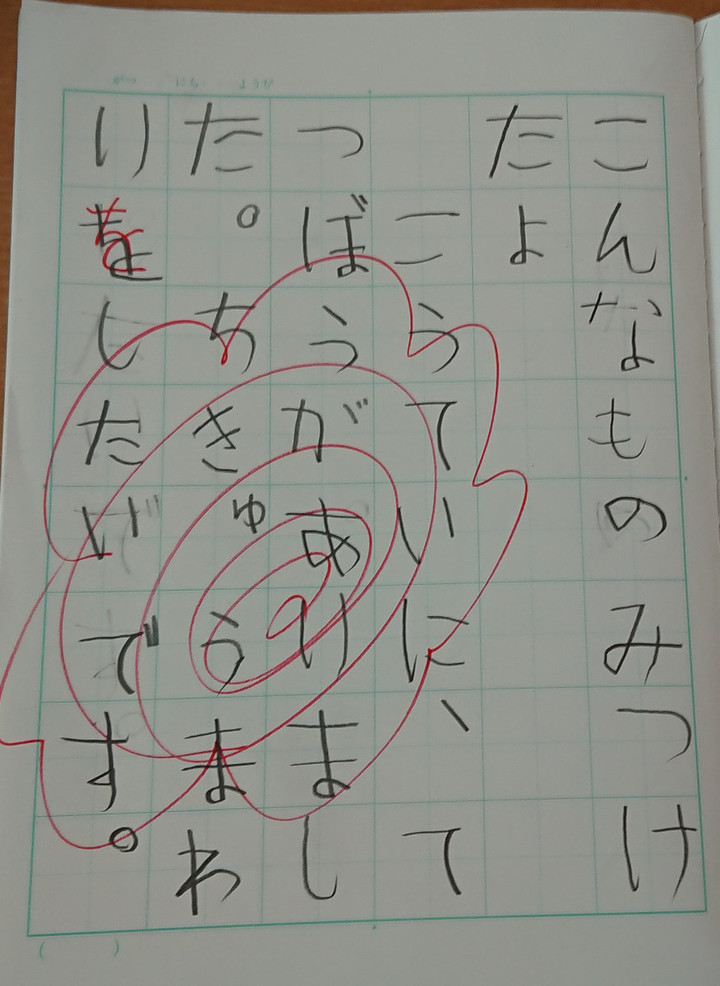 がつ にち ようび
こんなものみつけ
たよ
こうていに、て
つぼうがありまし
た。ちきゅうまわ
りをしたげです。